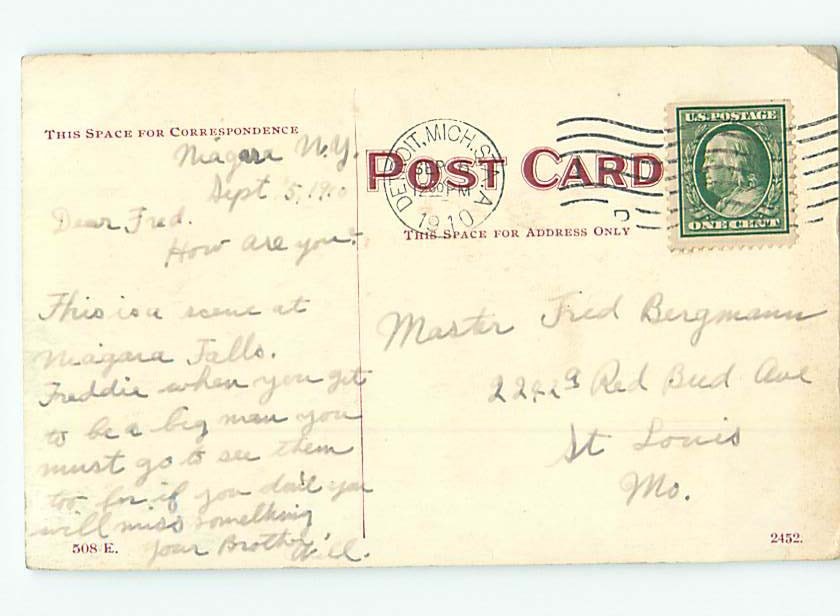 THIS SPACE FOR CORRESPONDENCE
Niagara N.Y.
Sept 5, 1910
Dear Fred.
How are you?
This is a scene at
Niagara Falls.
Freddie when you get
to be a big man you
must go to see them
too for if you don't you
will miss something
Your Brother Will.
508 E.
POST CARD
DETROIT, MICH. STA. A
SEP
12 30 PM
1910
THIS SPACE FOR ADDRESS ONLY
U.S. POSTAGE
ONE CENT
Master Fred Bergmann
Red Bud Ave
St Louis
Mo.
2452.